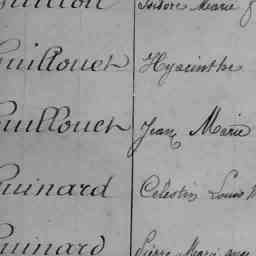 Isidore Marie
uillouet Hyacinthe
uillouet Jean Marie
uinard Célestin Louis
uinard Pierre Marie